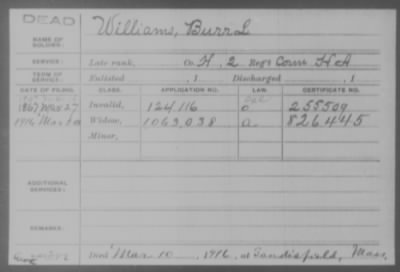 DEAD
Williams, Burr L
NAME OF SOLDIER:
SERVICE: Late rank, Co. H, 2 Reg't Conn H A
TERM OF SERVICE: Enlisted , 1 Discharged , 1
DATE OF FILING. CLASS. APPLICATION NO. LAW. CERTIFICATE NO.
1867 Mar 27 Invalid, 124116 255509
1916 Widow, 1063,038 a. 826445
Minor,
ADDITIONAL SERVICES:
REMARKS:
Died Mar 10, 1916, at Sandisfield, Mass.